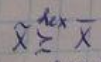 x̃ ≥ˡᵉˣ x̄